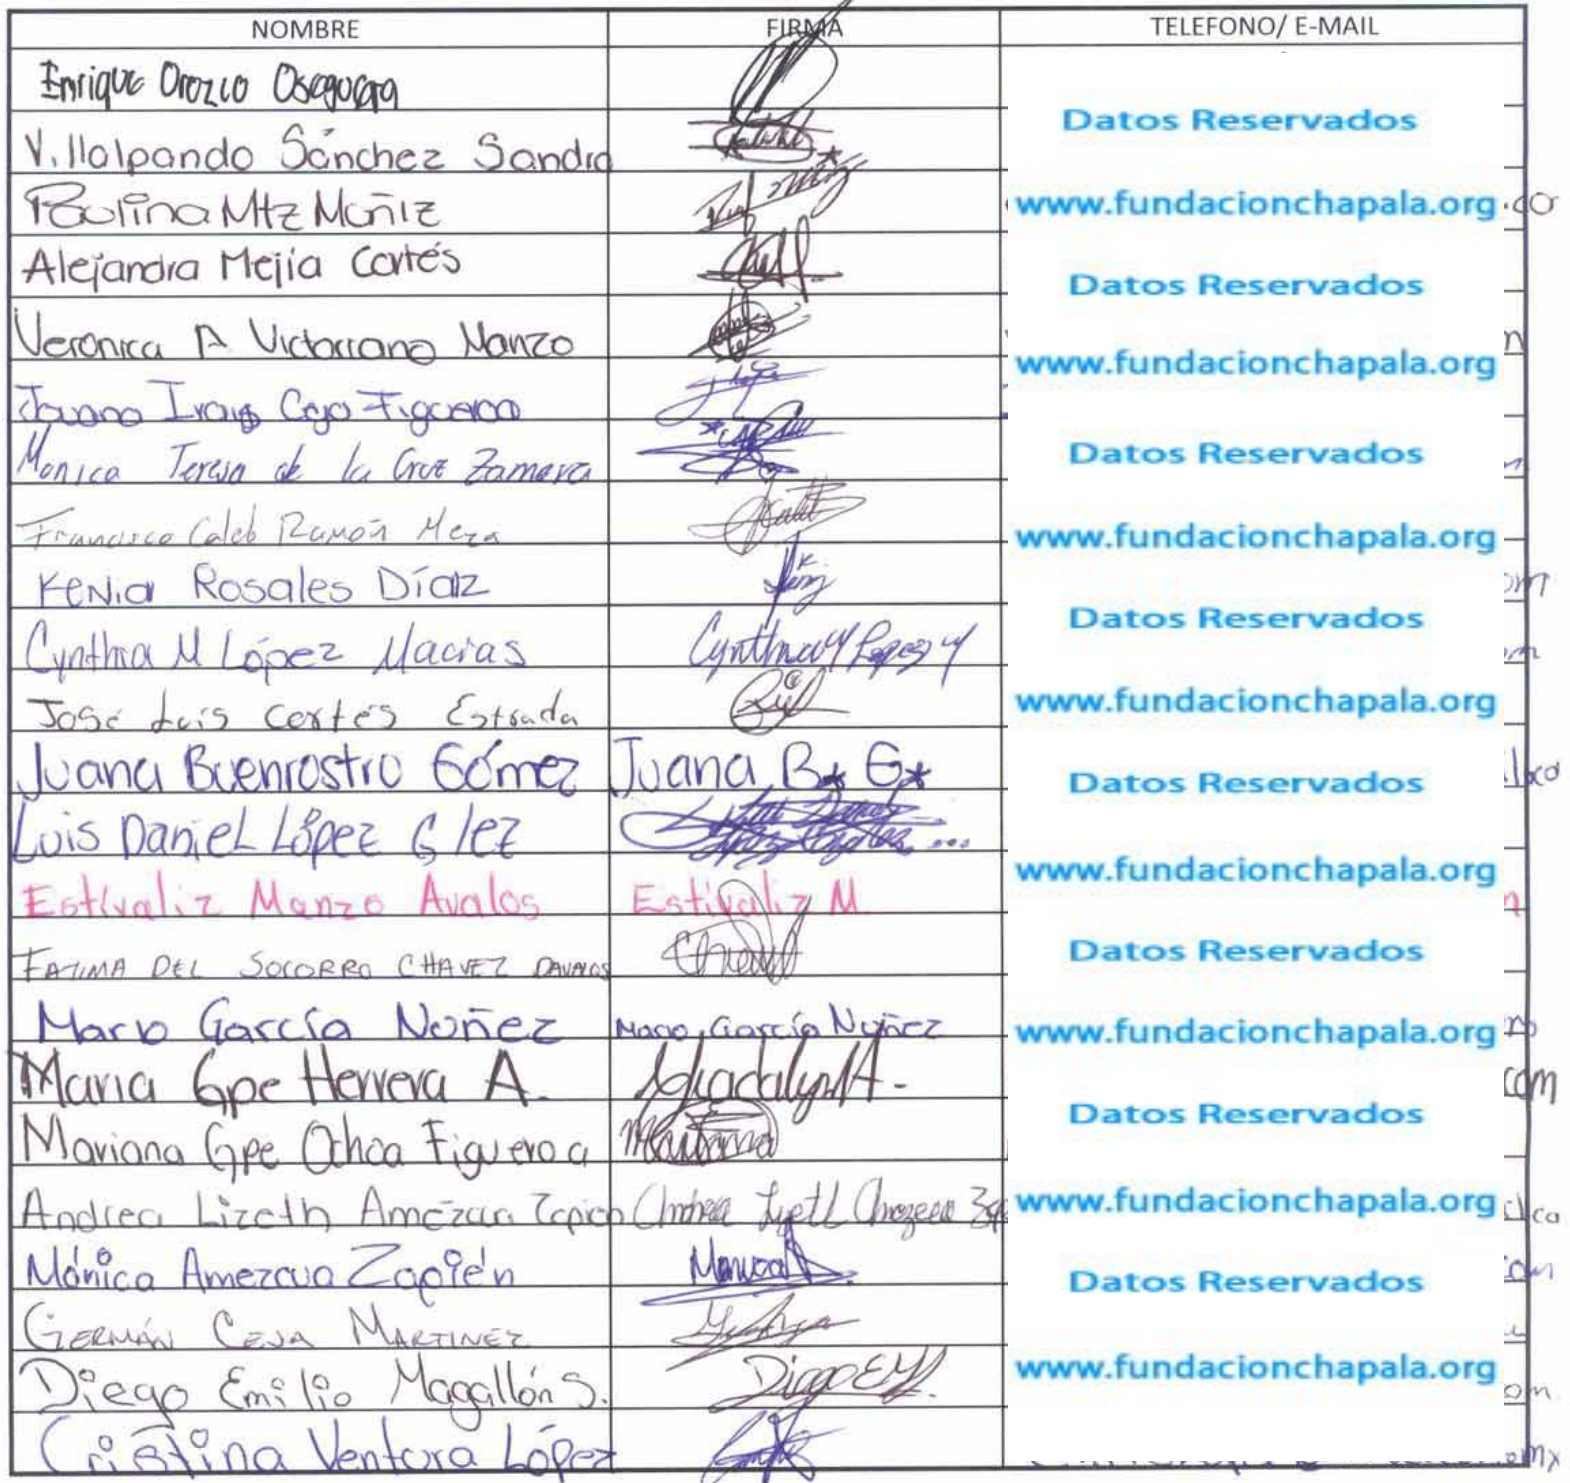 NOMBRE FIRMA TELEFONO/ E-MAIL
Enrique Orozco Oseguera
Datos Reservados
Villalpando Sánchez Sandra
Paulina Mtz Muñiz
www.fundacionchapala.org .co
Alejandra Mejía Cortés
Datos Reservados
Veronica A Victoriano Manzo
www.fundacionchapala.org
Figueroa
Monica Teresa de la Cruz Zamora
Datos Reservados
Francisco Caleb Ramón Meza
www.fundacionchapala.org
Kenia Rosales Díaz
om
Datos Reservados
Cynthia M López Macias Cynthia M López M
José Luis Cortés Estrada
www.fundacionchapala.org
Juana Buenrostro Gómez Juana B* G*
Datos Reservados
Luis Daniel López Glez
www.fundacionchapala.org
Estivaliz Manzo Avalos Estivaliz M.
FATIMA DEL SOCORRO CHAVEZ DAVALOS
Datos Reservados
Mario García Nuñez Mario García Nuñez
www.fundacionchapala.org
Maria Gpe Herrera A.
com
Datos Reservados
Mariana Gpe Ochoa Figueroa Mariana
Andrea Lizeth Amézcua Zapien Andrea Lizeth
www.fundacionchapala.org
Mónica Amezcua Zapién
Datos Reservados
GERMÁN CEJA MARTINEZ
Diego Emilio Magallón S. Diego EM
www.fundacionchapala.org
om
Cristina Ventura López